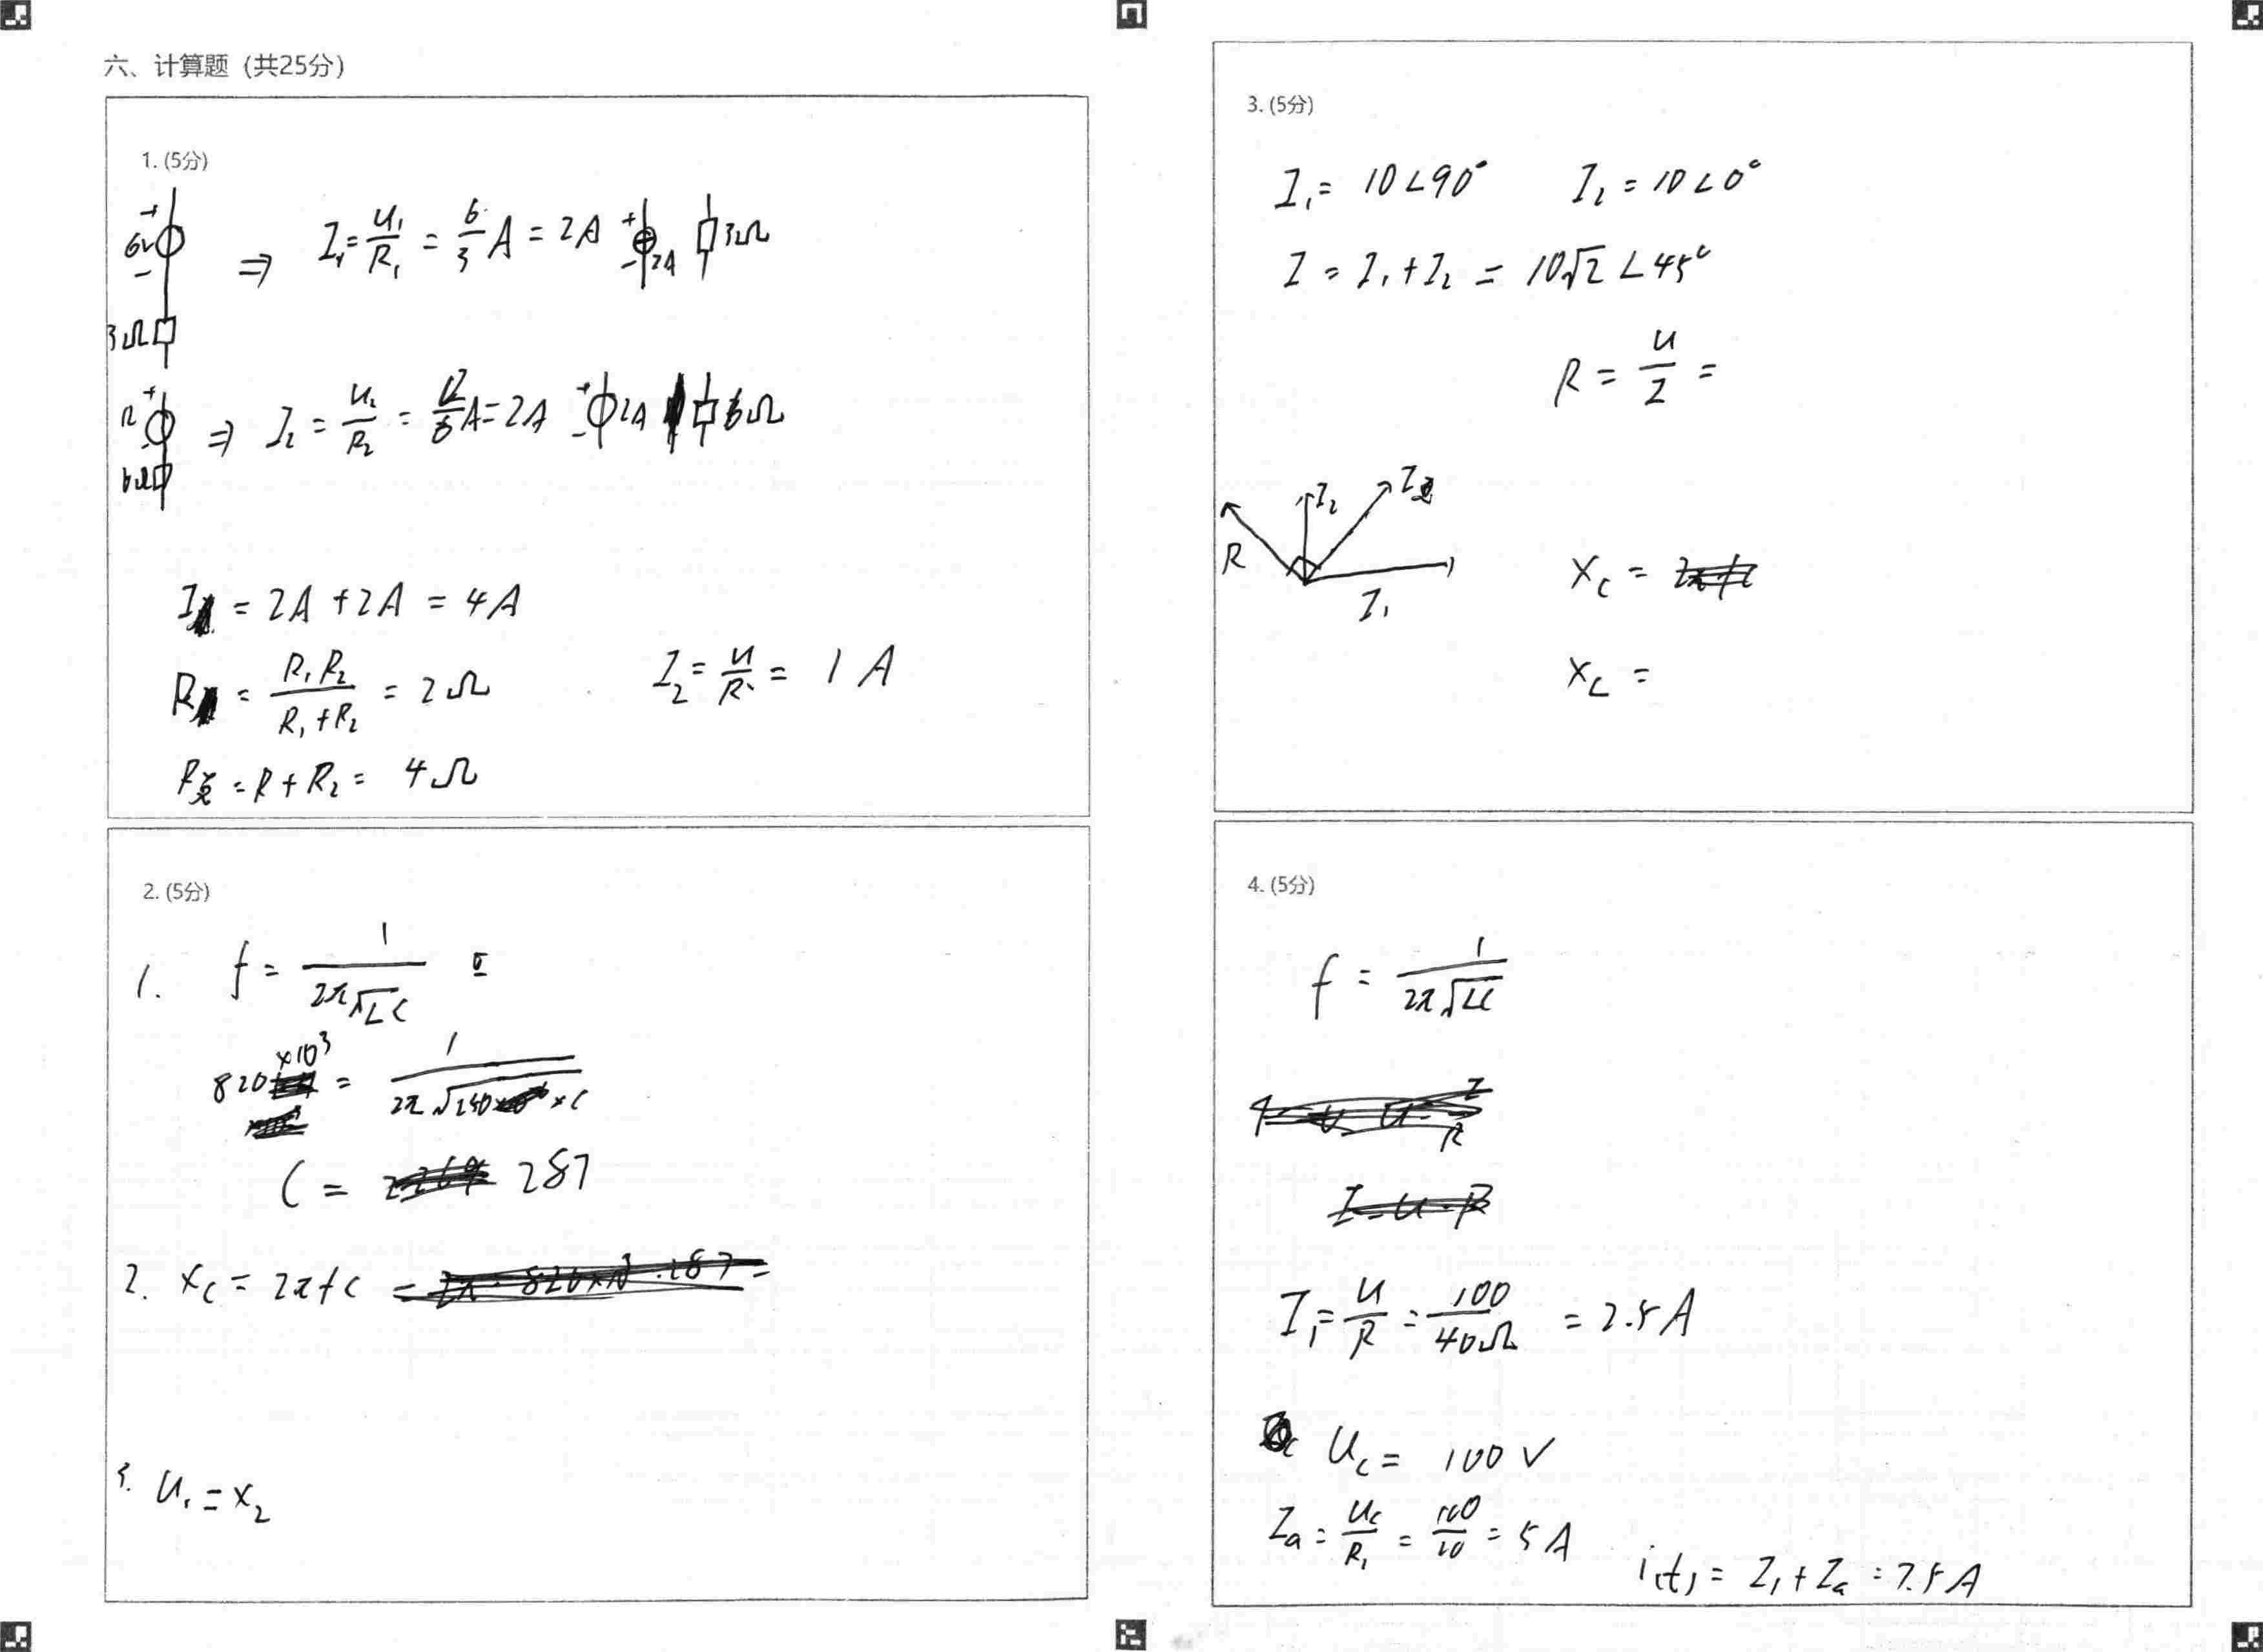 六、计算题 (共25分)
1. (5分)
+
6V
-
3Ω
⇒ I₁ = U₁/R₁ = 6/3 A = 2A
+
- 2A
3Ω
+
12
-
6Ω
⇒ I₂ = U₂/R₂ = 12/6 A = 2A
+
- 2A
6Ω
I = 2A + 2A = 4A
R = R₁R₂/(R₁+R₂) = 2Ω
I₂ = U/R = 1 A
R总 = R + R₂ = 4Ω
2. (5分)
1. f = 1/(2π√LC)
820×10³ = 1/(2π√(240×C))
C = 287
2. Xc = 2πfc =
3. U₁ = X₂
3. (5分)
I₁ = 10∠90° I₂ = 10∠0°
I = I₁ + I₂ = 10√2∠45°
R = U/I =
I₂
I
R
I₁
Xc =
XL =
4. (5分)
f = 1/(2π√LC)
I₁ = U/R = 100/40Ω = 2.5A
Uc = 100V
Ia = Uc/R₁ = 100/20 = 5A
i(t) = I₁ + Ia = 7.5A